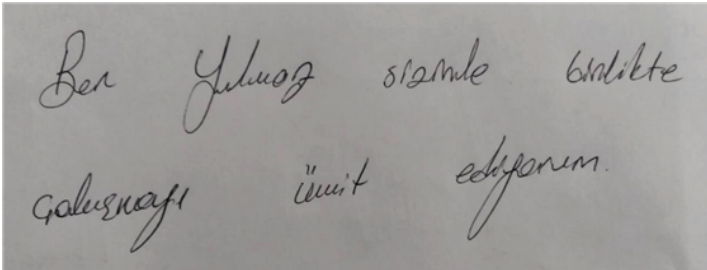 Ben Yılmaz sizinle birlikte
çalışmayı ümit ediyorum.